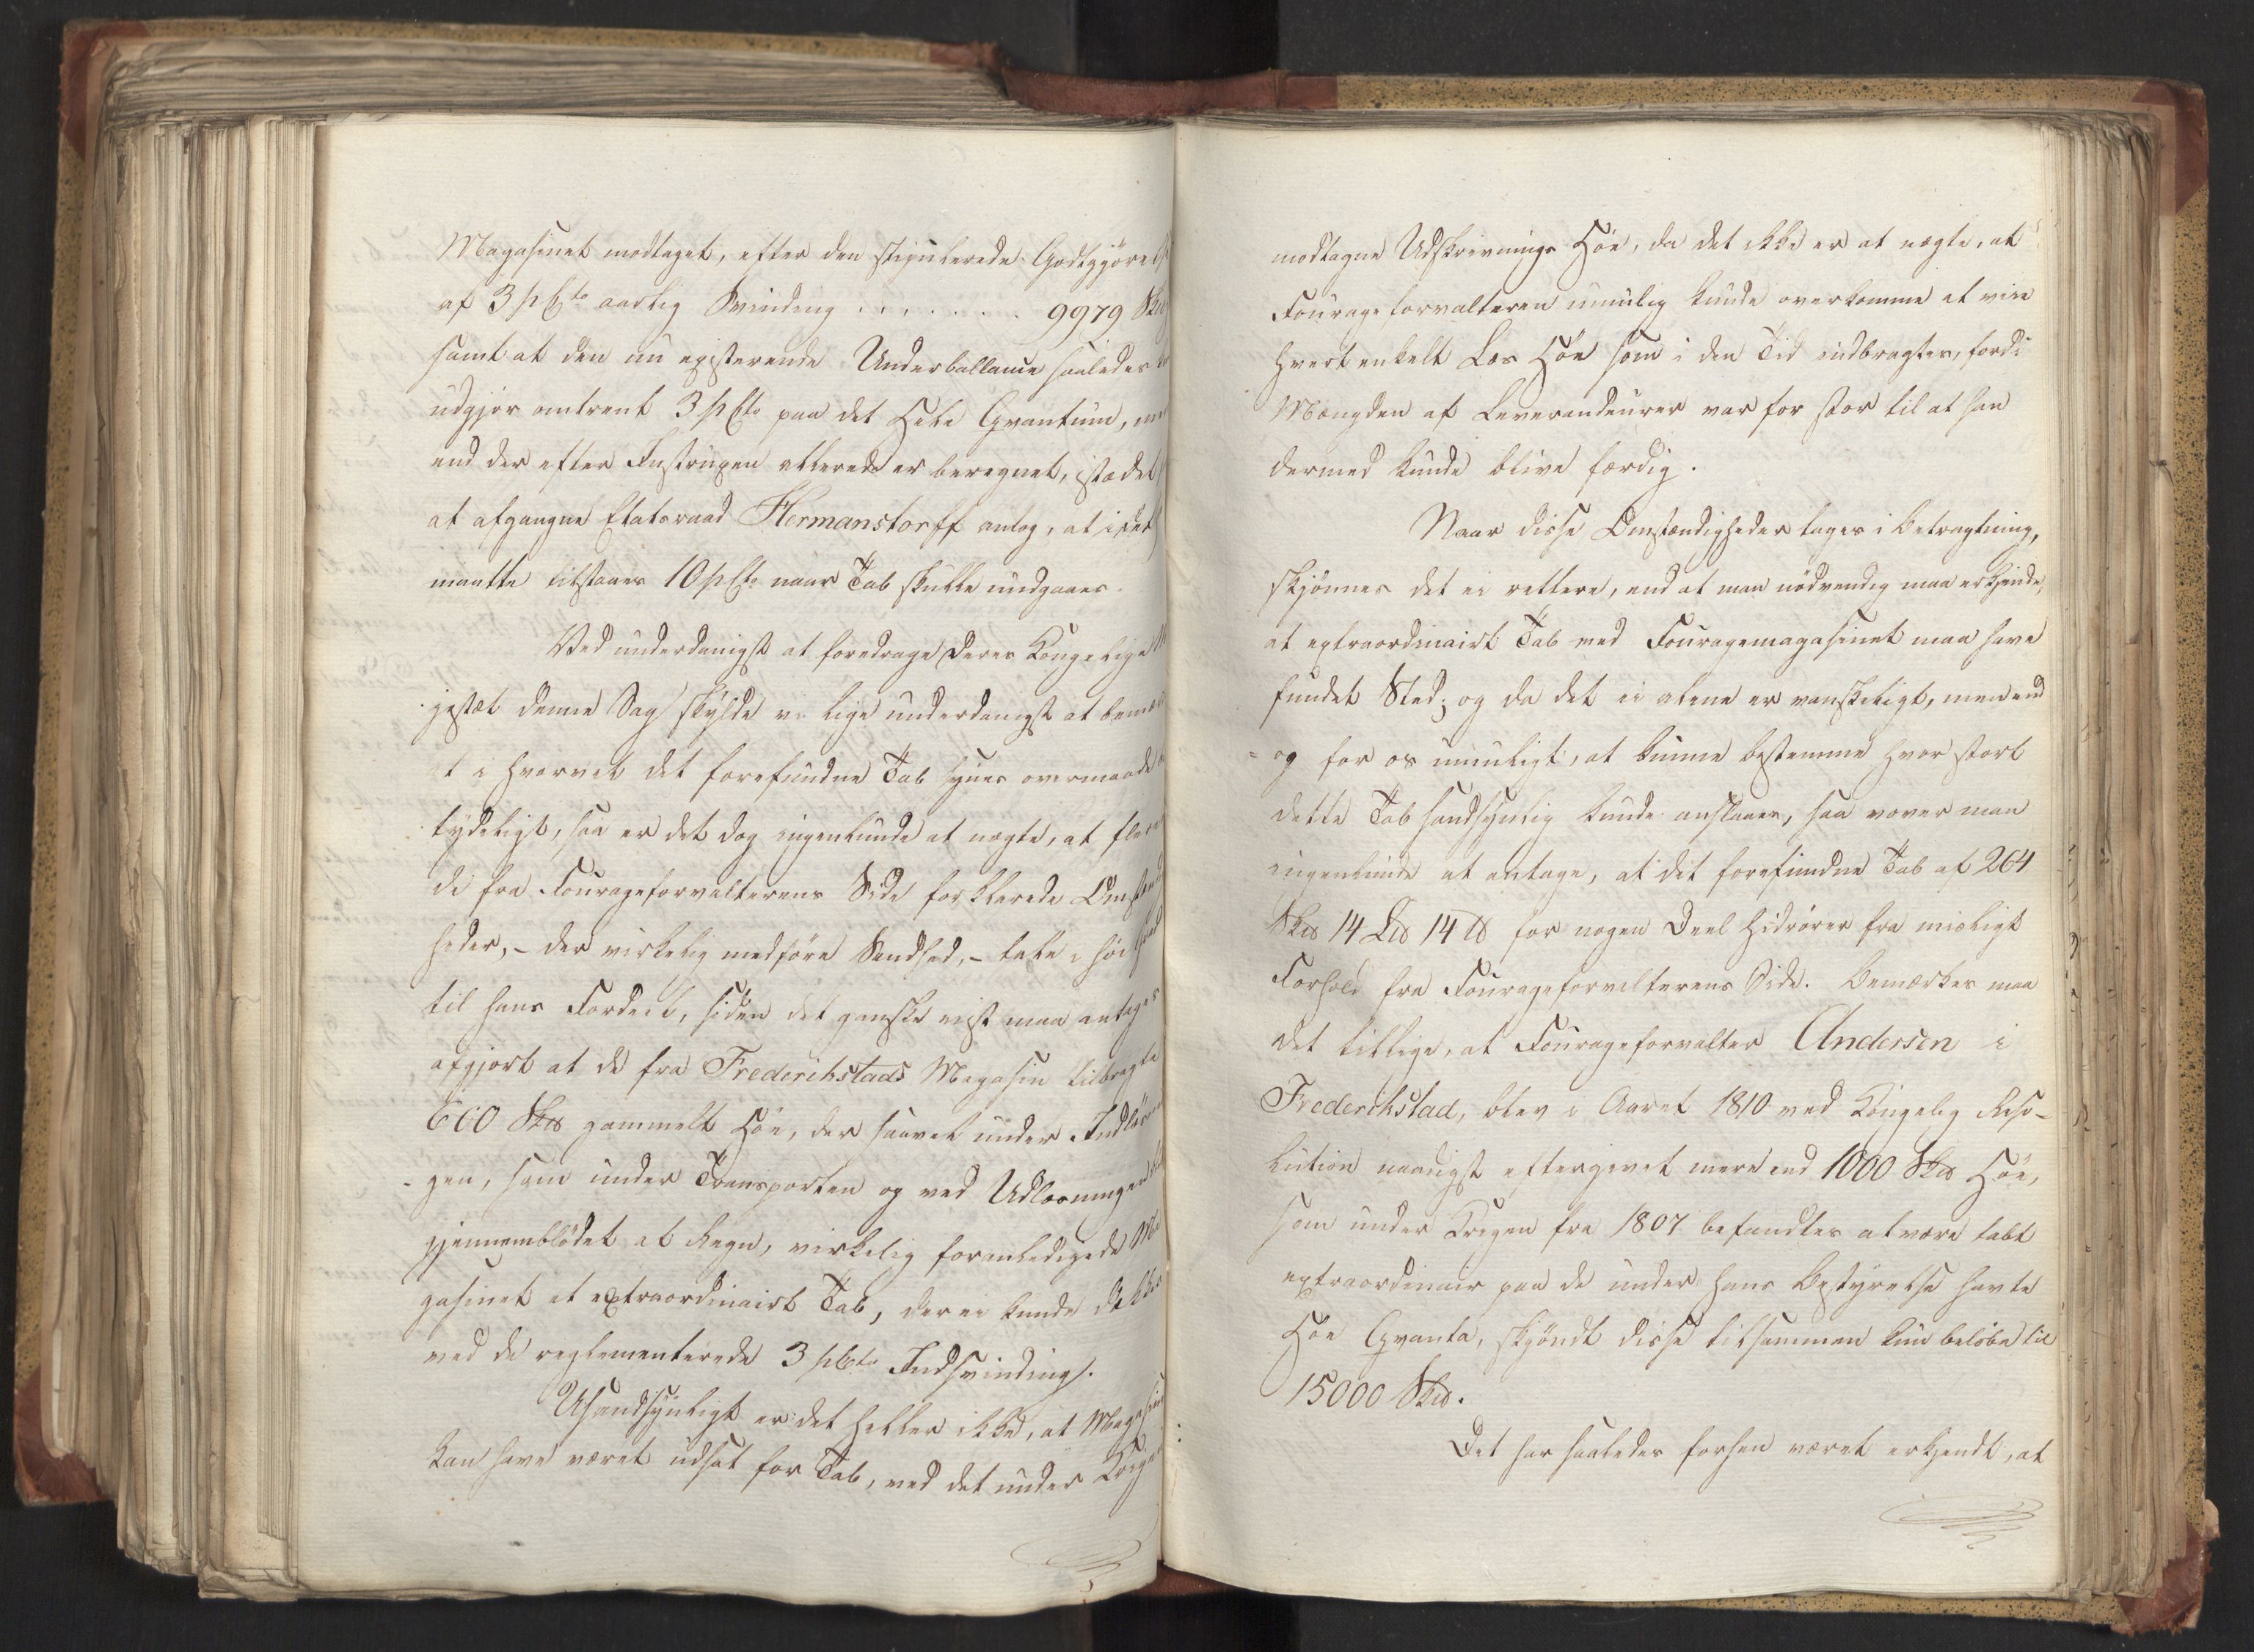 Magasinet modtaget, efter den stipulerede Godtgjörelse
af 3 pCto aarlig Svinding . . . . . . . 9979 Sk℔
samt at den nu existerende Underballance saaledes
udgjör omtrent 3 pCto paa det Hele Qvantum,
end der efter Instruxen allerede er beregnet, istædet
at afgangne Etatsraad Hermanstorff antog, at
maatte tilstaaes 10 pCto naar Tab skulle undgaaes.
Ved underdanigst at foredrage Deres Kongelige
jestæt denne Sag skylde vi lige underdanigst at bemær
t i hvorvel det forefundne Tab synes overmaade
tydeligt, saa er det dog ingenlunde at nægte, at flere
de fra Fourageforvalterens Side forklarede Omstændig
heder, - der virkelig medföre Sandhed, - tale i höi
til hans Fordeel, siden det ganske vist maa antages
afgjort at de fra Frederikstads Magasin tilbragte
600 Sk℔ gammelt Höe, der saavel under Indlösnin
gen, som under Transporten og ved Udlosningen
gjennemblödet af Regn, virkelig foranledigede Ma
gasinet et extraordinairt Tab, der ei kunde dækkes
ved de reglementerede 3 pCto Indsvinding.
Usandsynligt er det heller ikke, at Magasinet
kan have været udsat for Tab, ved det under Krigen
modtagne Udskrivnings Höe, da det ikke er at nægte, at
Fourageforvalteren umulig kunde overkomme at veie
hvert enkelt Læs Höe som i den Tid indbragtes, fordi
Mængden af Leverandeurer var for stor til at han
dermed kunde blive færdig.
Naar disse Omstændigheder tages i Betragtning,
skjönnes det ei rettere, end at man nödvendig maa erkjende,
at extraordinairt Tab ved Fouragemagasinet maa have
fundet Sted; og da det ei alene er vanskeligt, men end
og for os umuligt, at kunne bestemme hvor stort
dette Tab sandsynlig kunde anslaaes, saa vover man
ingenlunde at antage, at det forefundne Tab af 264
Sk℔ 14 L℔ 14 ℔ for nogen Deel hidrörer fra misligt
Forhold fra Fourageforvalterens Side. Bemærkes maa
det tillige, at Fourageforvalter Andersen i
Frederikstad, blev i Aaret 1810 ved Kongelig Reso-
lution naadigst eftergivet mere end 1000 Sk℔ Höe,
som under Krigen fra 1807 befandtes at være tabt
extraordinair paa de under hans Bestyrelse havte
Höe Qvanta, skjöndt disse tilsammen kun belöbe til
15000 Sk℔.
Det har saaledes forhen været erkjendt, at